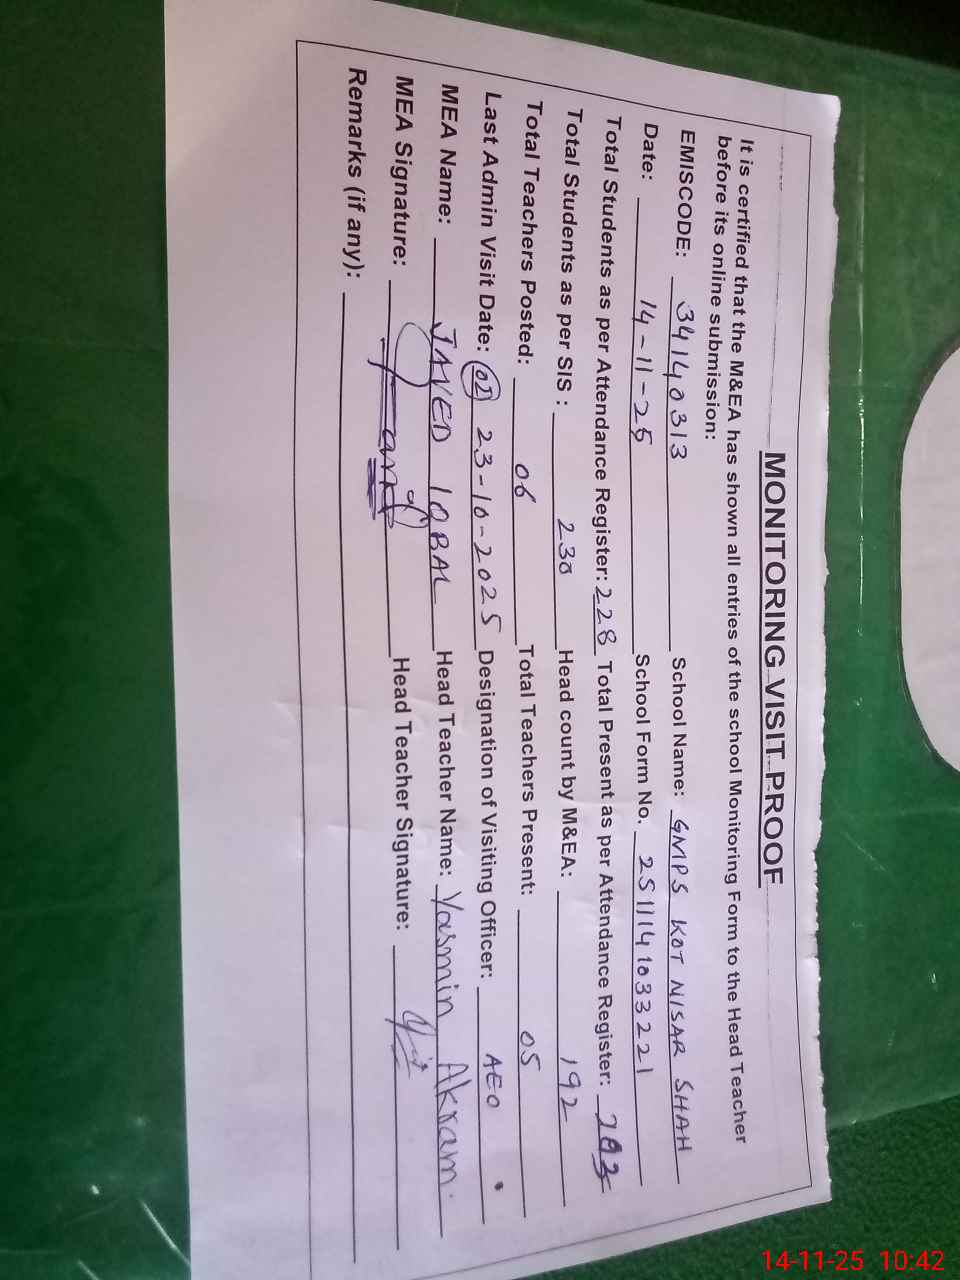 MONITORING VISIT PROOF
It is certified that the M&EA has shown all entries of the school Monitoring Form to the Head Teacher
before its online submission:
EMISCODE: 34140313 School Name: GMPS KOT NISAR SHAH
Date: 14-11-25 School Form No. 251114103221
Total Students as per Attendance Register: 228 Total Present as per Attendance Register: 203
Total Students as per SIS : 230 Head count by M&EA: 192
Total Teachers Posted: 06 Total Teachers Present: 05
Last Admin Visit Date: 02 23-10-2025 Designation of Visiting Officer: AEO
MEA Name: JAVED IQBAL Head Teacher Name: Yasmin Akram.
MEA Signature: Head Teacher Signature:
Remarks (if any):
14-11-25 10:42